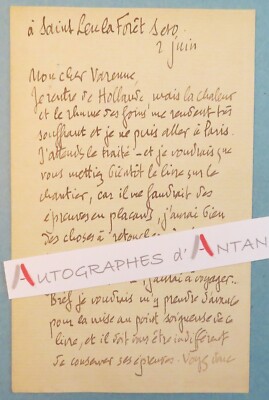 à Saint Leu la Forêt S et O
2 juin
Mon cher Varenne,
Je rentre de Hollande mais la chaleur
et le rhume des foins me rendent très
souffrant et je ne puis aller à Paris.
J'attends le traité - et je voudrais que
vous mettiez bientôt le livre sur le
chantier, car il me faudrait des
épreuves en placards, j'aurai bien
des choses à retoucher
AUTOGRAPHES d'ANTAN
j'aurai à voyager..
Bref je voudrais m'y prendre d'avance
pour la mise au point soigneuse de ce
livre, et il doit vous être indifférent
de conserver ses épreuves. Voyez donc